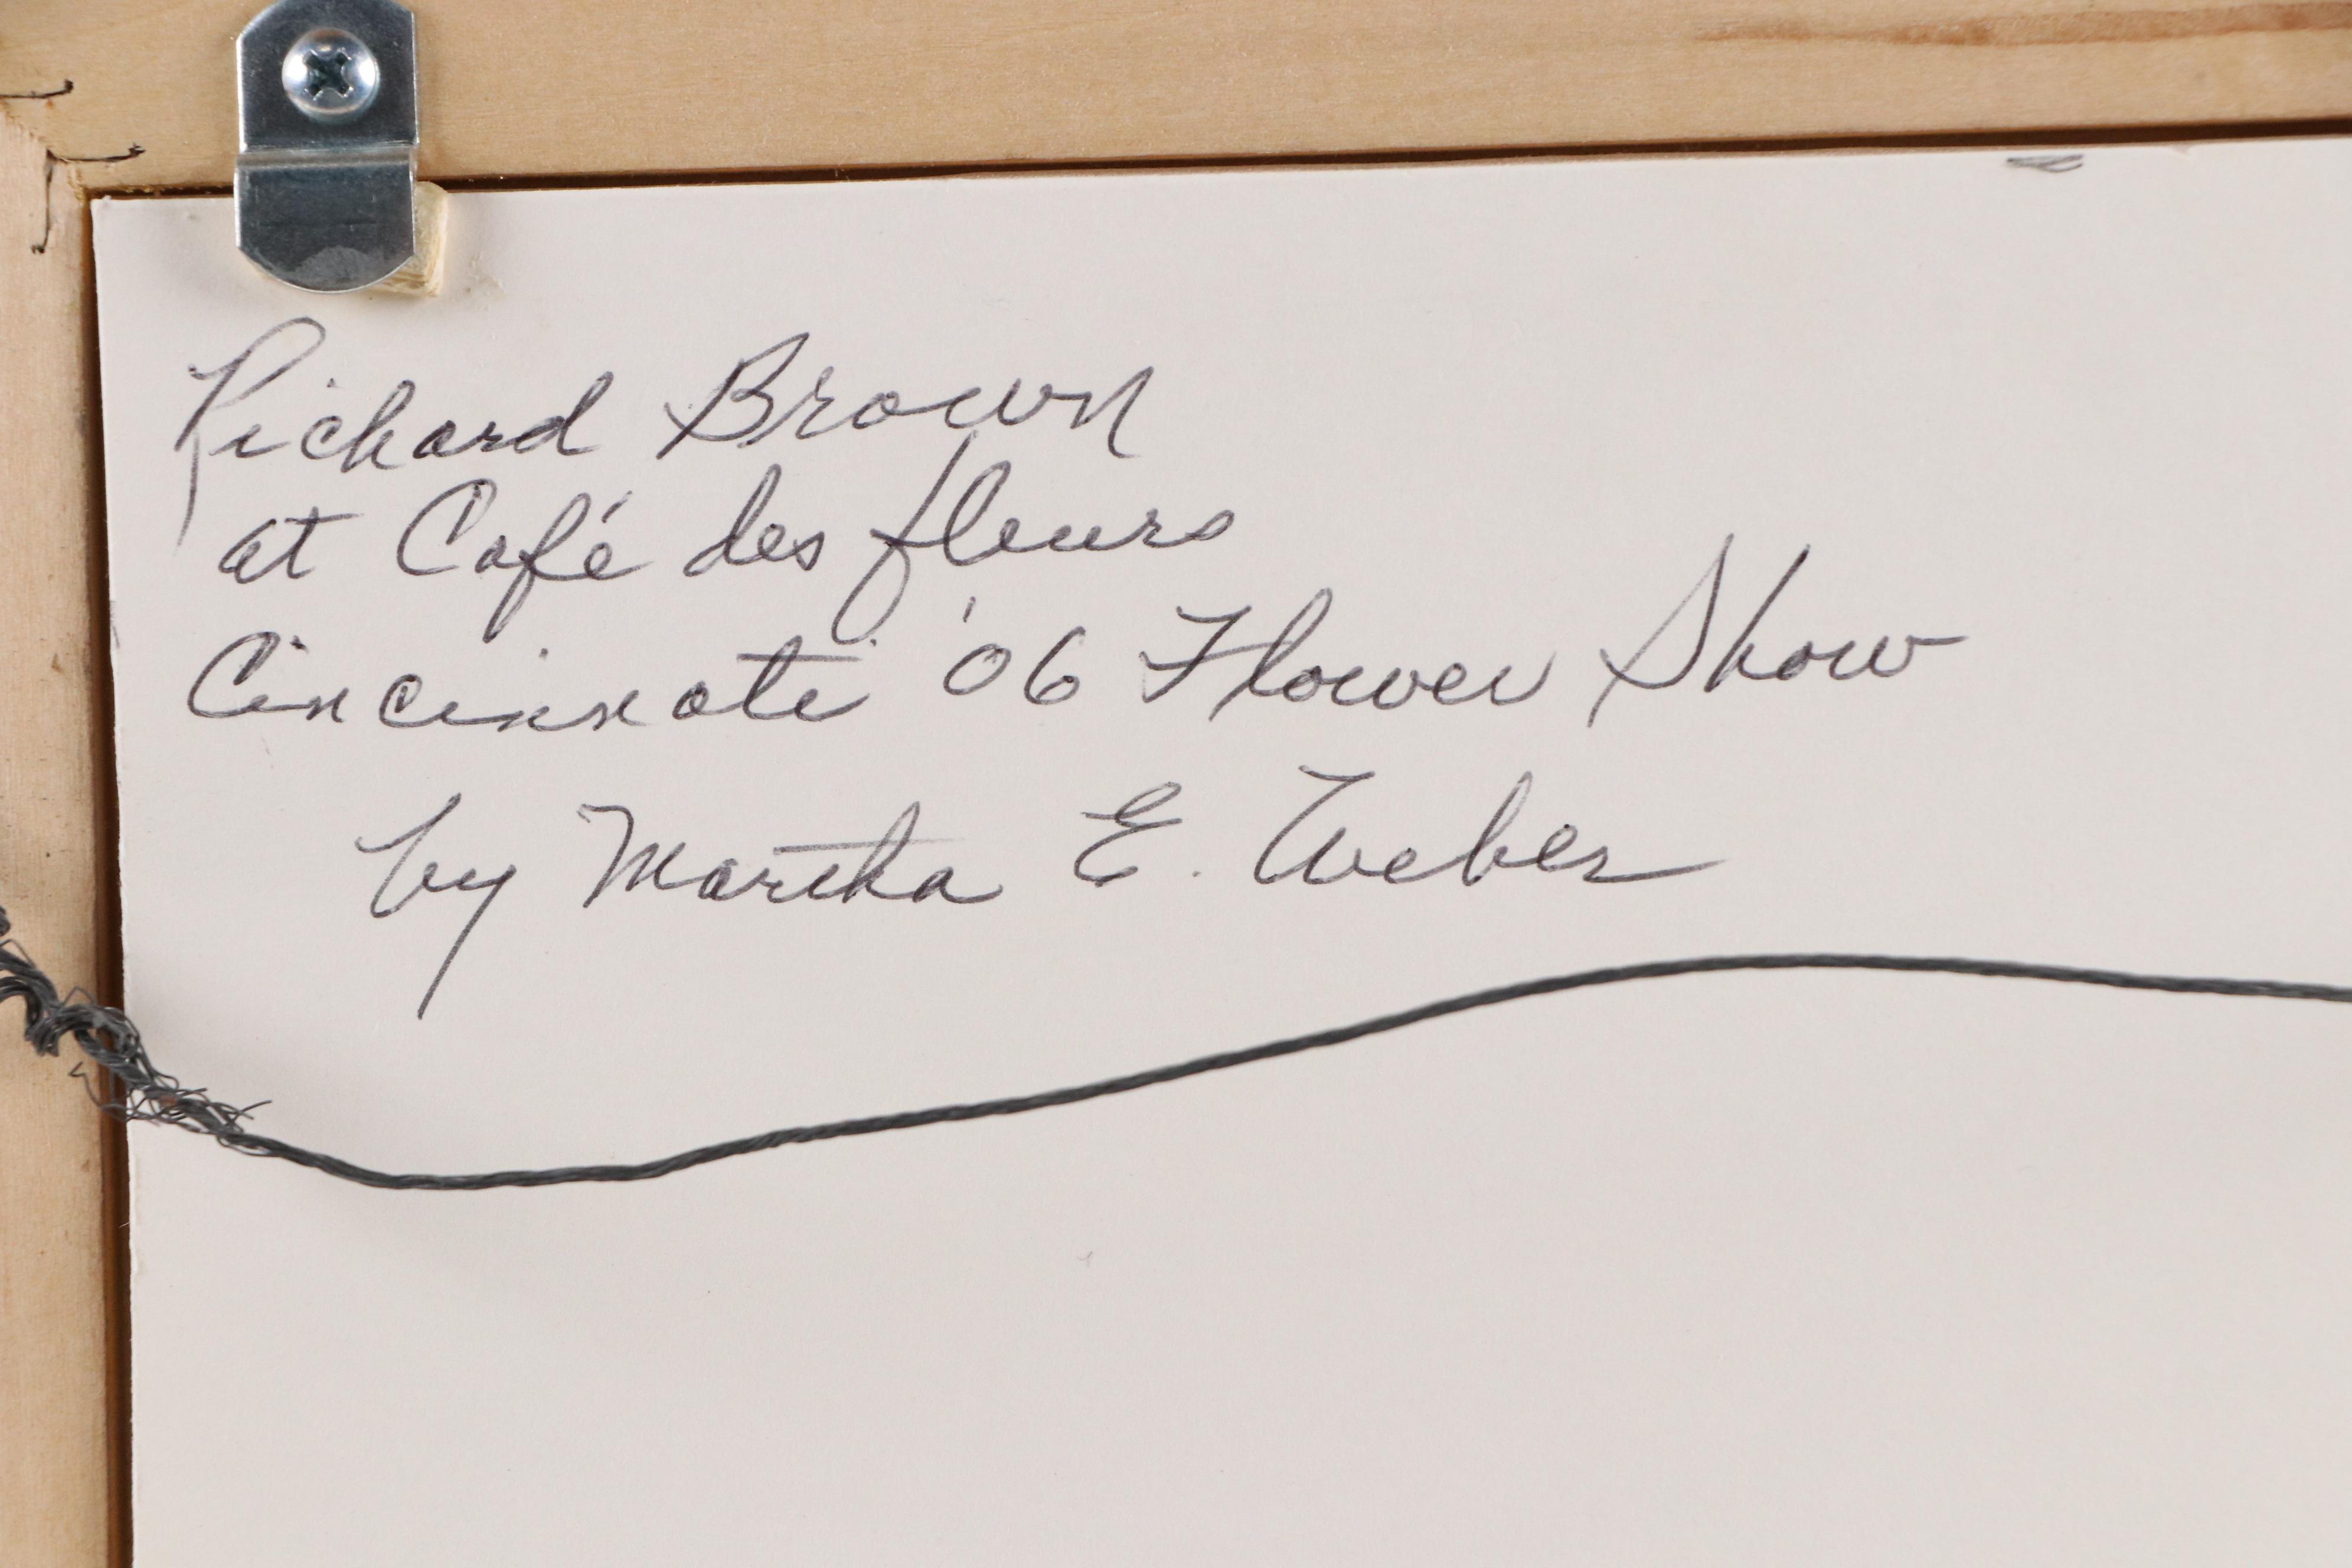 Richard Brown
at Café des fleurs
Cincinnati '06 Flower Show
by Martha E. Weber